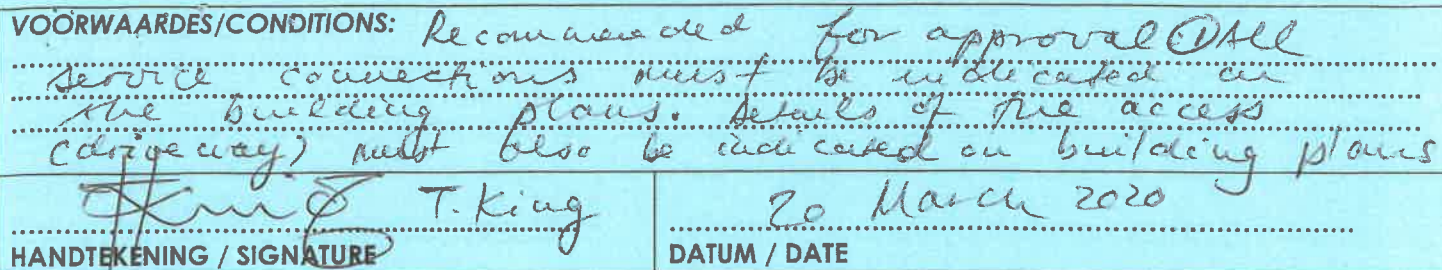 VOORWAARDES/CONDITIONS: Recommended for approval ① All
service connections must be indicated on
the building plans. Details of the access
(driveway) must also be indicated on building plans
T. King 20 March 2020
HANDTEKENING / SIGNATURE DATUM / DATE